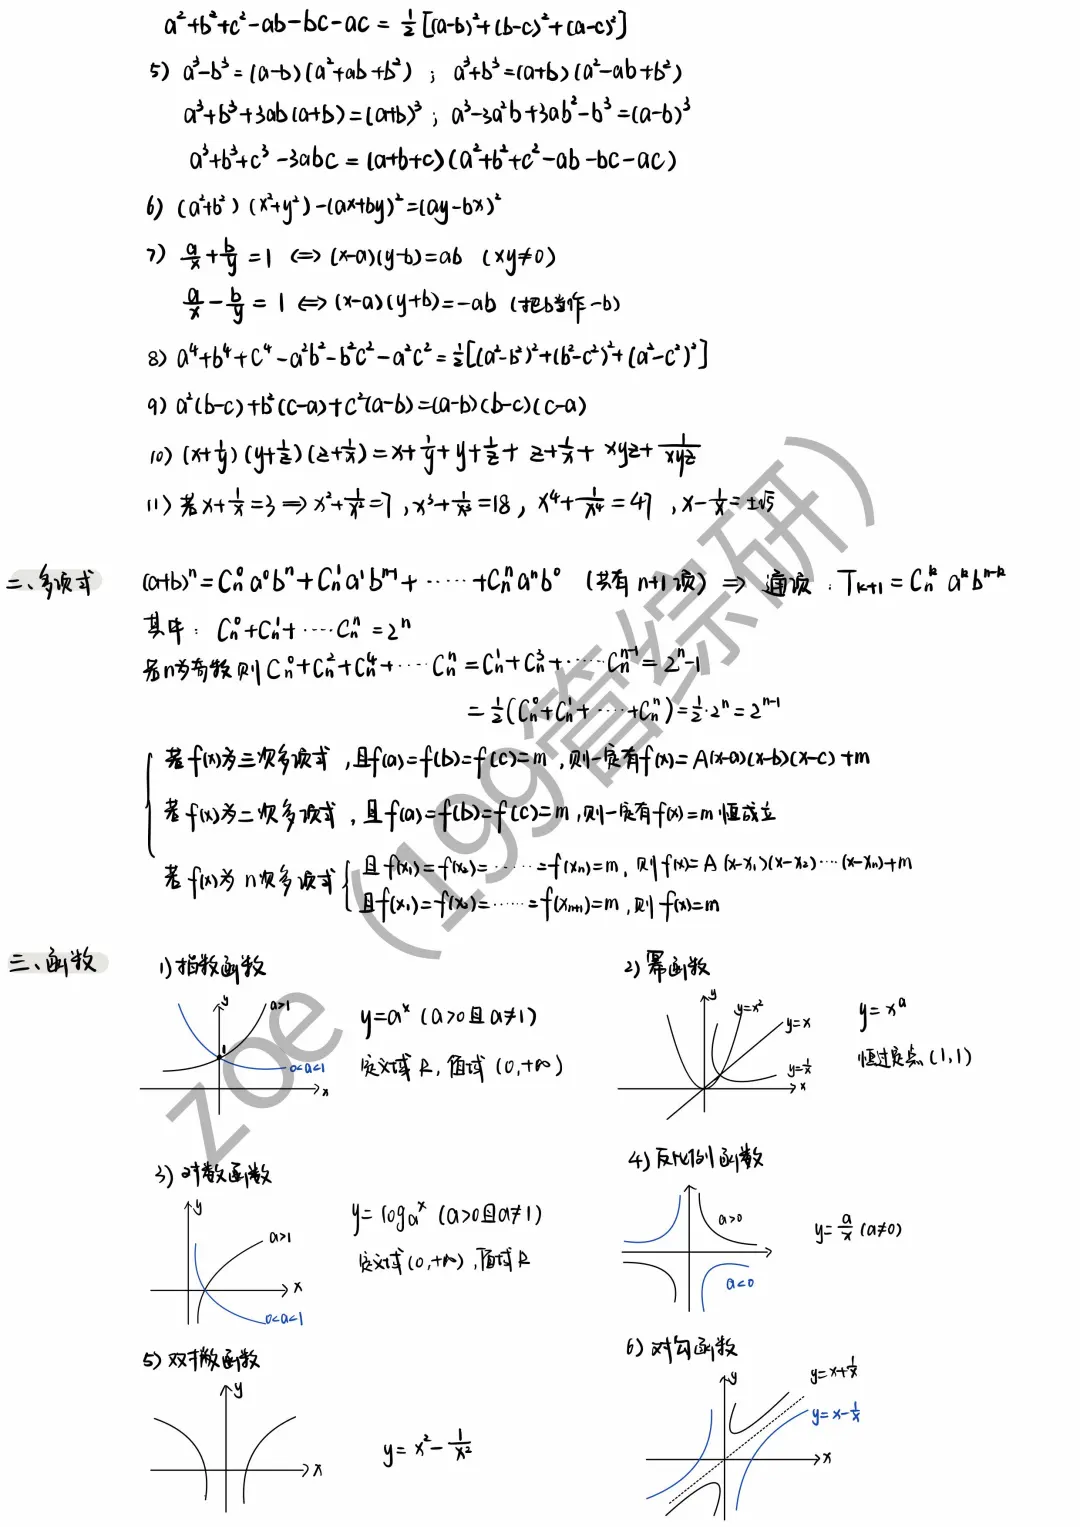 a²+b²+c²-ab-bc-ac = ½[(a-b)²+(b-c)²+(a-c)²]
5) a³-b³=(a-b)(a²+ab+b²) ; a³+b³=(a+b)(a²-ab+b²)
a³+b³+3ab(a+b)=(a+b)³ ; a³-3a²b+3ab²-b³=(a-b)³
a³+b³+c³-3abc = (a+b+c)(a²+b²+c²-ab-bc-ac)
6) (a²+b²)(x²+y²)-(ax+by)²=(ay-bx)²
7) a/x + b/y = 1 ⇔ (x-a)(y-b)=ab (xy≠0)
a/x - b/y = 1 ⇔ (x-a)(y+b)=-ab (把b当作-b)
8) a⁴+b⁴+c⁴-a²b²-b²c²-a²c²=½[(a²-b²)²+(b²-c²)²+(a²-c²)²]
9) a²(b-c)+b²(c-a)+c²(a-b)=(a-b)(b-c)(c-a)
10) (x+1/y)(y+1/z)(z+1/x)=x+1/y+y+1/z+z+1/x+xyz+1/xyz
11) 若x+1/x=3 ⇒ x²+1/x²=7, x³+1/x³=18, x⁴+1/x⁴=47, x-1/x=±√5
二、多项式 (a+b)ⁿ=Cₙ⁰a⁰bⁿ+Cₙ¹a¹bⁿ⁻¹+……+Cₙⁿaⁿb⁰ (共有n+1项) ⇒ 通项:Tₖ₊₁=Cₙᵏaᵏbⁿ⁻ᵏ
其中: Cₙ⁰+Cₙ¹+……Cₙⁿ=2ⁿ
若n为奇数则Cₙ⁰+Cₙ²+Cₙ⁴+……Cₙⁿ=Cₙ¹+Cₙ³+……Cₙⁿ⁻¹=2ⁿ-1
=½(Cₙ⁰+Cₙ¹+……+Cₙⁿ)=½·2ⁿ=2ⁿ⁻¹
若f(x)为三次多项式,且f(a)=f(b)=f(c)=m,则一定有f(x)=A(x-a)(x-b)(x-c)+m
若f(x)为二次多项式,且f(a)=f(b)=f(c)=m,则一定有f(x)=m恒成立
若f(x)为n次多项式
且f(x₁)=f(x₂)=……=f(xₙ)=m,则f(x)=A(x-x₁)(x-x₂)…(x-xₙ)+m
且f(x₁)=f(x₂)=……=f(xₙ₊₁)=m,则f(x)=m
三、函数
1)指数函数
y
a>1
1
0<a<1
x
y=aˣ (a>0且a≠1)
定义域R,值域(0,+∞)
2)幂函数
y
y=x²
y=x
y=1/x
x
y=xᵃ
恒过定点(1,1)
3)对数函数
y
a>1
x
0<a<1
y=logₐˣ (a>0且a≠1)
定义域(0,+∞),值域R
4)反比例函数
a>0
a<0
y=a/x (a≠0)
5)双撇函数
y
x
y=x²-1/x²
6)对勾函数
y
y=x+1/x
y=x-1/x
x
zoe(199管综研)